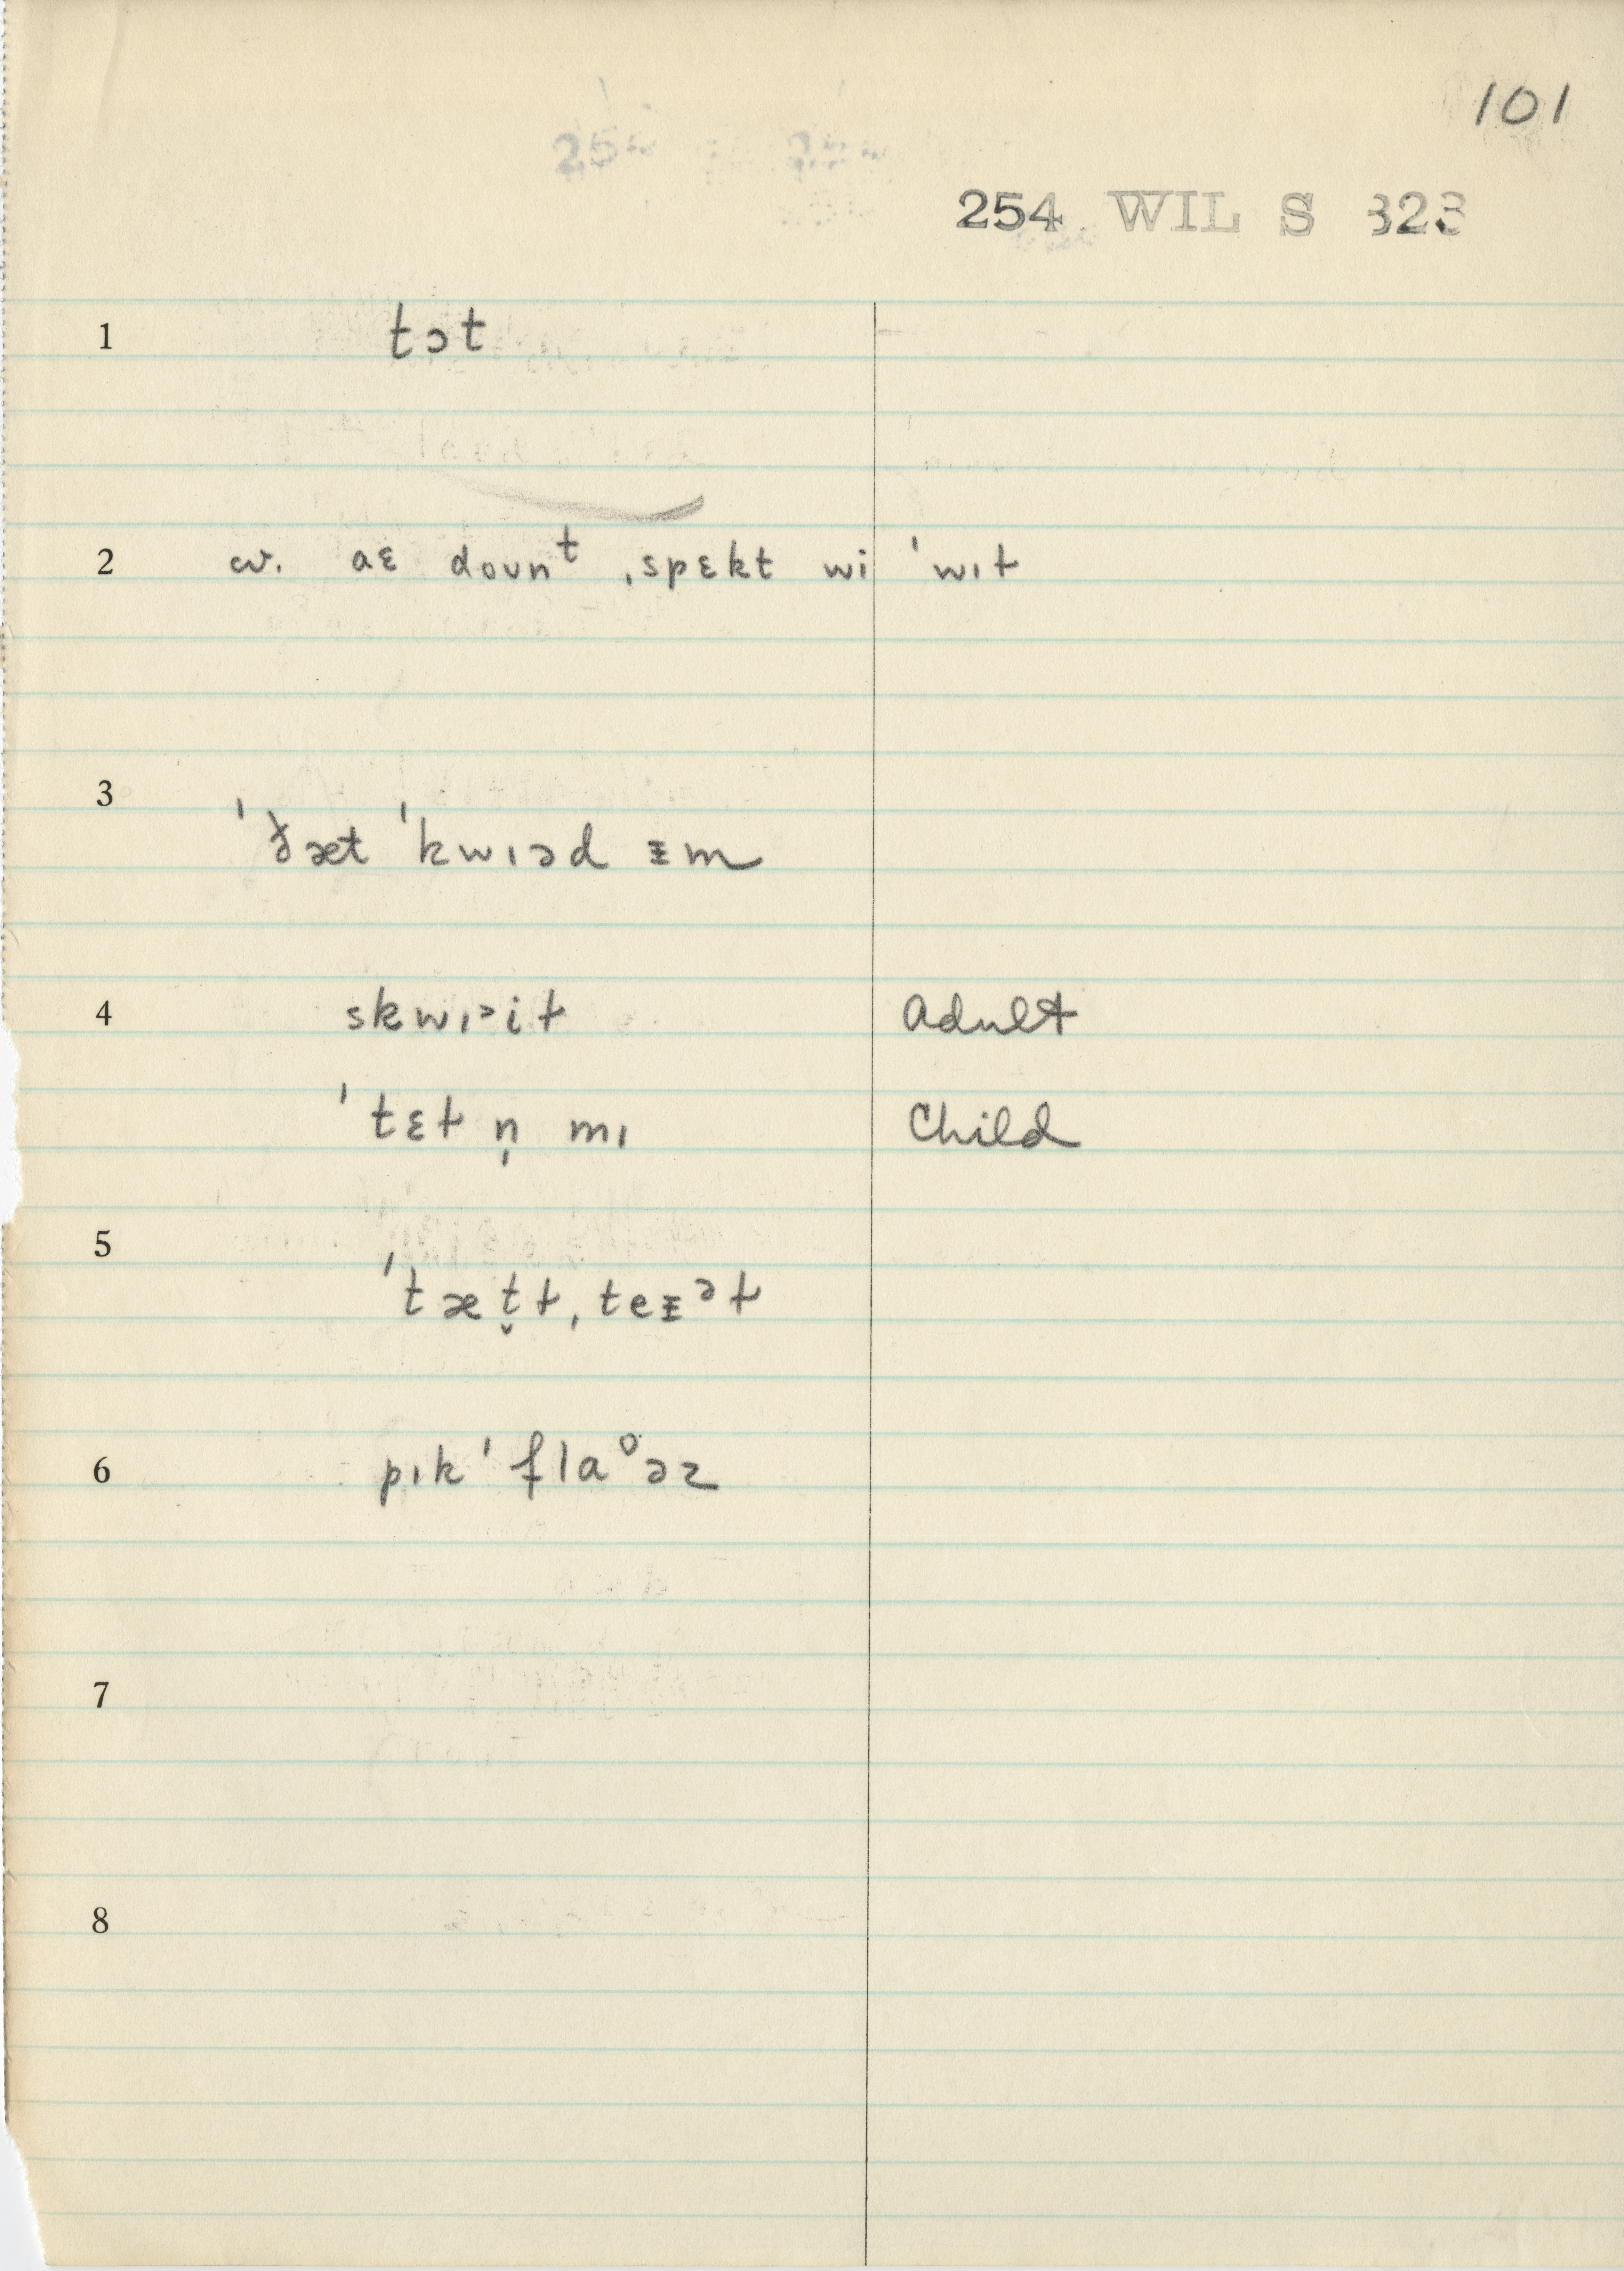 101
254 WIL S 323
1 tɔt
2 cv. aɛ doʊnᵗ ˌspɛkt wi ˈwɪɫ
3
ˈðæt ˈkwɪəd ᵻm
4 skwɪᵊiɫ Adult
ˈtɛɫ n̩ mɪ Child
5
ˈtæt̬ɫˌteᵻᵊɫ
6 pɪkˈflaᶷəz
7
8